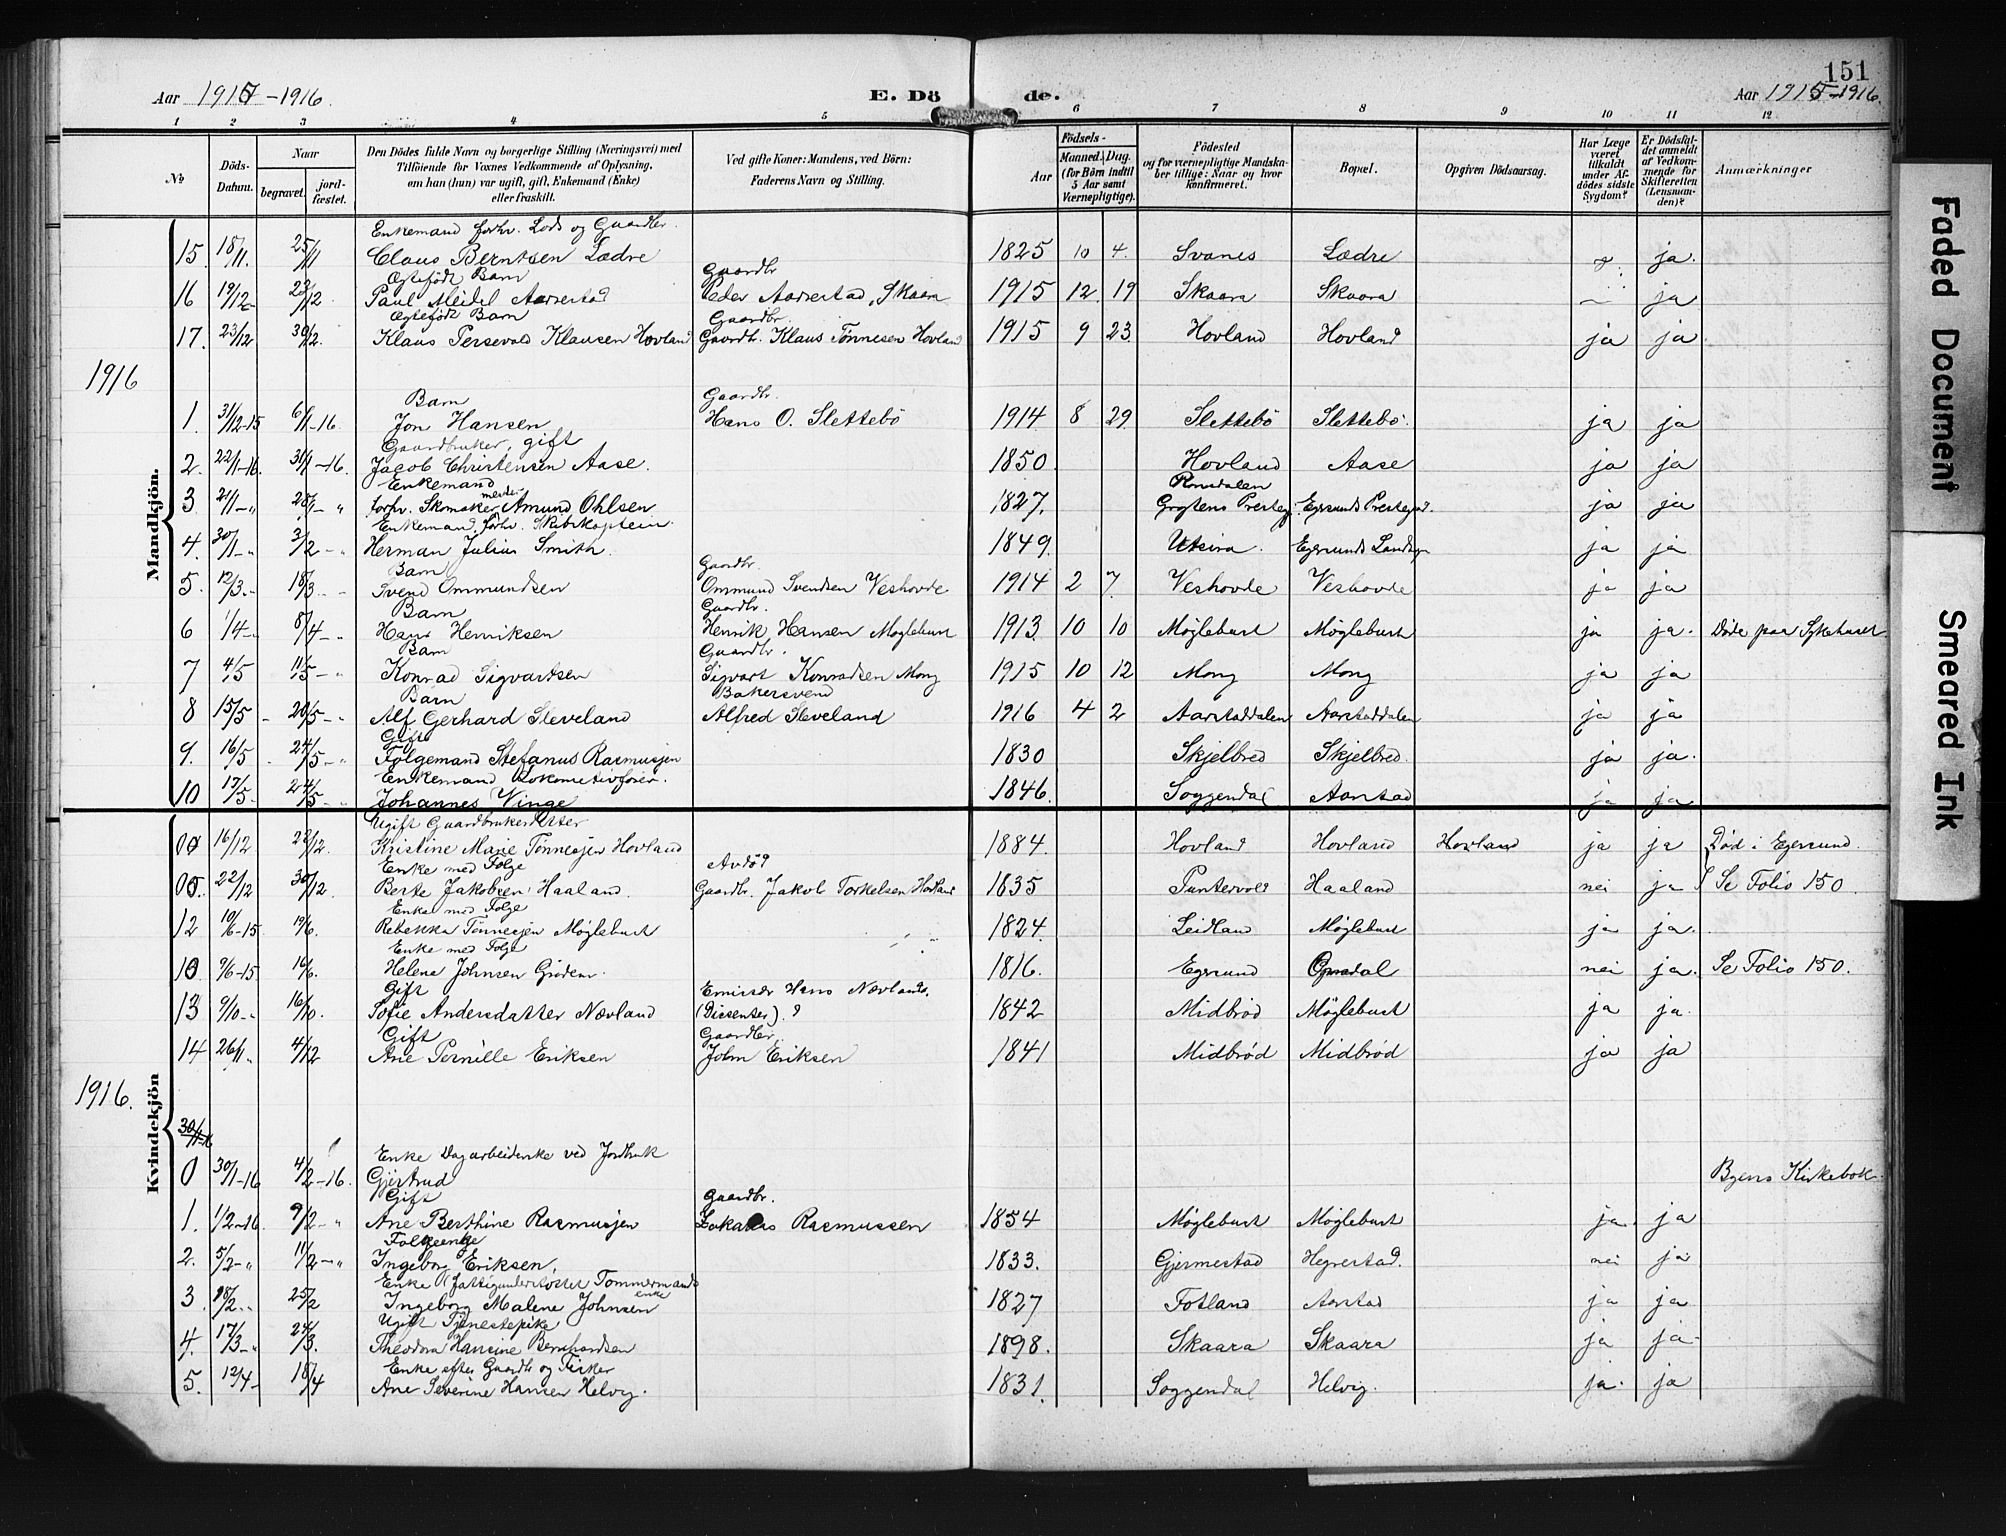 151
Aar 1915-1916.
E. Dö de.
Aar 1915-1916.
1 2 3 4 5 6 7 8 9 10 11 12
№
Döds-Datum.
Naar
begravet.
jordfæstet.
Den Dödes fulde Navn og borgerlige Stilling (Næringsvei) med
Tilföiende for Voxnes Vedkommende af Oplysning,
om han (hun) var ugift, gift, Enkemand (Enke)
eller fraskilt.
Ved gifte Koner: Mandens, ved Börn:
Faderens Navn og Stilling.
Födsels-
Aar
Maaned. Dag.
(for Börn indtil
5 Aar samt
Værnepligtige).
Födested
og for værnepligtige Mandskaber tillige: Naar og hvor
konfirmeret.
Bopæl.
Opgiven Dödsaarsag.
Har Læge
været
tilkaldt
under Afdödes sidste
Sygdom?
Er Dödsfaldet anmeldt
af Vedkommende for
Skifteretten
(Lensmanden)?
Anmærkninger
Mandkjön.
Enkemand forhv. Lods og Gaardbr.
15. 18/11. 25/11 Claus Berntsen Lædre 1825 10 4. Svanes Lædre ja.
Ogtefödt Barn Gaardbr
16 19/12- 23/12 Paul Meidel Aarrestad Peder Aarrestad, Skaara 1915 12 19 Skaara Skaara ja
Ogtefödt Barn Gaardbr.
17. 23/12 30/12. Klaus Persevald Klausen Hovland Gaardbr. Klaus Tønnesen Hovland 1915 9 23 Hovland Hovland ja ja
1916
Barn Gaardbr.
1. 31/12-15 6/1-16. Jon Hansen Hans O. Slettebö 1914 8 29 Slettebö Slettebö. ja ja
Gaardbruker, gift
2. 22/1-16. 31/1-16. Jacob Christensen Aase. 1850. Hovland Aase ja ja
Enkemand Romsdalen
3 21/1-" 28/1-" forhv. Skomaker Amund Ohlsen 1827. Grytens Presteg. Egersunds Prestegjd. ja ja
Enkemand, forhv. Skibskaptein
4. 30/1-" 3/2-" Herman Julius Smith. 1849. Utsira. Egersunds Landsgn ja ja
Barn Gaardbr.
5. 12/3-" 18/3-" Svend Ommundsen Ommund Svendsen Veshovde 1914 2 7. Veshovde Veshovde ja ja
Barn Gaardbr.
6 1/4-" 8/4-" Hans Henriksen Henrik Hansen Møglebust 1913. 10 10 Møglebust Møglebust ja ja. Døde paa Sykehuset
Barn Gaardbr.
7 4/5 11/5-" Konrad Sigvartsen Sigvart Konradsen Mong 1915 10 12 Mong Mong ja ja
Barn Bakersvend
8 15/5 - 20/5-" Alf Gerhard Sleveland Alfred Sleveland 1916 4 2 Aarstaddalen Aarstaddalen ja ja
Gift
9. 16/5 24/5-" Følgemand Stefanus Rasmusjen 1830 Skjelbred Skjelbred. ja ja.
Enkemand Lokomotivfører.
10 17/5- 24/5-" Johannes Vinge 1846. Soggendal Aarstad ja ja
Kvindekjön
Ugift Gaardbrukerdatter
16/12 22/12. Kristine Marie Tønnesjen Hovland 1884. Hovland Hovland Hovland ja ja Død i Egersund.
Enke med Følge Avdød
22/12 30/12 Berte Jakobsen Haaland Gaardbr. Jakob Torkelsen Hovland 1835 Puntervold Haaland nei ja Se Folio 150.
Enke med Følge
12 10/6-15 19/6. Rebekka Tønnesjen Møglebust 1824. Leidland Møglebust ja ja.
Enke med Følge
10. 9/6-15 16/6. Helene Johnsen 1816. Egersund nei ja. Se Folio 150.
Gift Emissær Hans Nævland.
13 9/10-" 16/10. Sofie Andersdatter Nævland (Dissenter). ? 1842 Midbrød Møglebust ja ja.
Gift Gaardbr.
14 26/11" 4/12 Ane Pernille Eriksen John Eriksen 1841 Midbrød Midbrød ja ja
1916.
30/1-16
Enke Dagarbeidenke ved Jordbruk
0 30/1-16 4/2-16. Gjertrud Byens Kirkebok.
Gift Gaardbr.
1. 1/2-16. 9/2-" Ane Berthine Rasmusjen Zakarias Rasmussen 1854 Møglebust Møglebust ja. ja
Følgeenke
2. 5/2-" 11/2-" Ingeborg Eriksen, 1833. Gjermestad Hegrestad. nei ja
Enke (Fattigunderstøttet Tømmermands enke
3. 18/2-" 25/2 Ingeborg Malene Johnsen 1827 Fotland Aarstad ja ja
Ugift Tjenestepike
4. 17/3-" 24/3. Theodora Hansine Bernhardsen 1898. Skaara Skaara ja ja
Enke efter Gaardbr og Fisker
5. 12/4- 18/4 Ane Severine Hansen Helvig. 1831. Soggendal Helvig. ja. ja
Faded Document
Smeared Ink